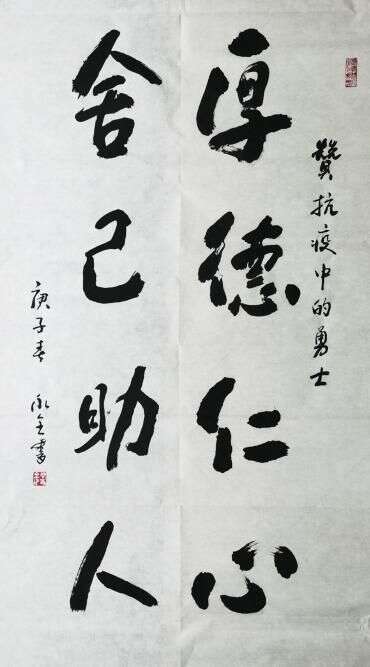 贊抗疫中的勇士
厚德仁心
舍己助人
庚子春 永全書